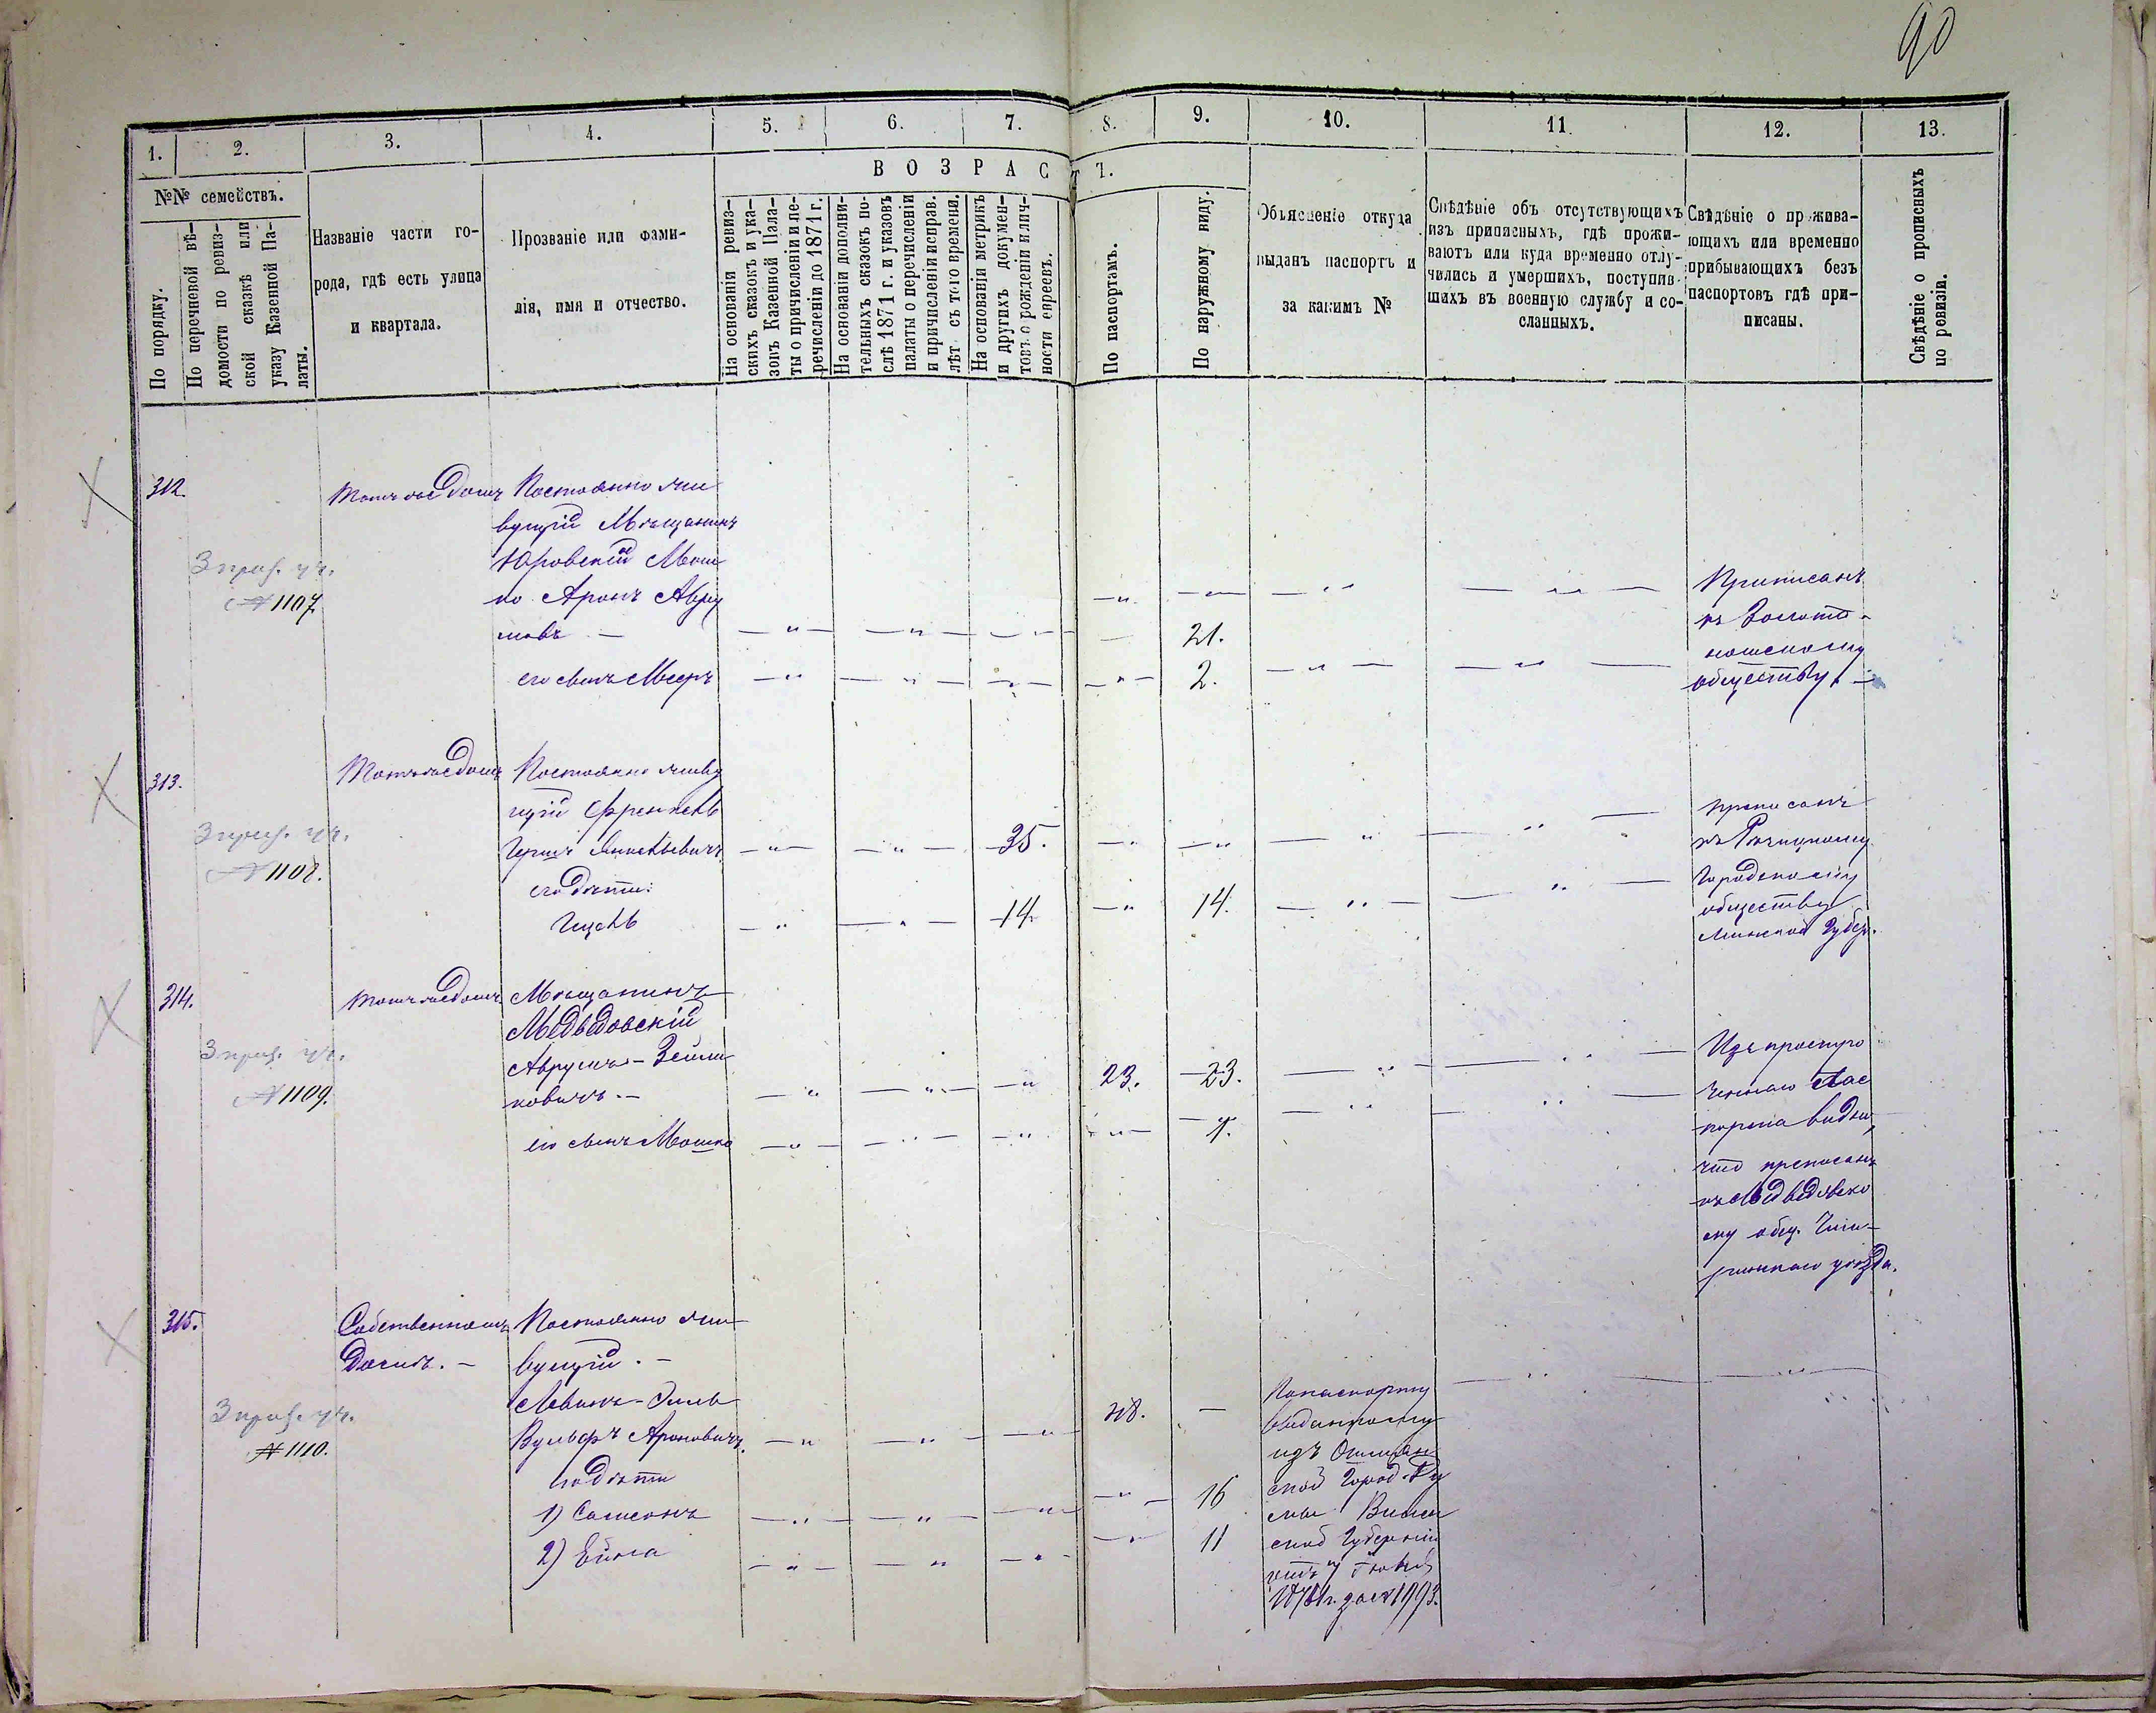 90
1. 2. 3. 4. 5. 6. 7. 8. 9. 10. 11. 12. 13.
№№ семействъ.
По порядку.
По перечневой вѣ-
домости по ревиз-
ской сказкѣ или
указу Казенной Па-
латы.
Названіе части го-
рода, гдѣ есть улица
и квартала.
Прозваніе или фами-
лія, имя и отчество.
ВОЗРАСТ
На основаніи ревиз-
скихъ сказокъ и ука-
зовъ Казенной Пала-
ты о причисленіи и пе-
речисленіи до 1871 г.
На основаніи дополни-
тельныхъ сказокъ по-
слѣ 1871 г. и указовъ
палаты о перечисленіи
и причисленіи исправ.
лѣт съ того времени.
На основаніи метрикъ
и другихъ докумен-
товъ о рожденіи и лич-
ности евреевъ.
По паспортамъ.
По наружному виду.
Объясненіе откуда
выданъ паспортъ и
за какимъ №
Свѣдѣніе объ отсутствующихъ
изъ приписныхъ, гдѣ прожи-
ваютъ или куда временно отлу-
чились и умершихъ, поступив-
шихъ въ военную службу и со-
сланныхъ.
Свѣдѣніе о прожива-
ющихъ или временно
прибывающихъ безъ
паспортовъ гдѣ при-
писаны.
Свѣдѣніе о прописныхъ
по ревизіи.
312.
Томъ же домѣ
Постоянно жи
вущій Мѣщанинъ
Юровскій Мош
ко Аронъ Абру
мовъ —
21.
его сынъ Мееръ
2.
3 приз. уч.
№ 1107
Приписанъ
къ Золото-
ношскому
обществу. —
313.
Томъ же домѣ
Постоянно живу
щій Френкель
Гершъ
35.
его дѣти:
14. 14.
3 приз. уч.
№ 1108.
приписанъ
къ Рѣчицкому
Городскому
обществу
Минской Губер.
314.
Томъ же домѣ
Мѣщанинъ
Медвѣдовскій
Аврумъ-Зейли
ковичъ. —
23. 23.
его сынъ Мошко
3 приз. уч.
№ 1109.
Изъ просроч
ченнаго Пас
порта видно,
что приписанъ
къ Медвѣдовско
му общ. Чиги-
ринскаго уѣзда.
315.
Собственномъ
домѣ. —
Постоянно жи
вущій. —
Левинъ-
Вульфъ Ароновичъ.
48. —
его дѣти
1) Самсонъ
16
2)
11
3 приз. уч.
№ 1110.
По паспорту
выданному
изъ Ошмян
ской Город. Ду
мы Вилен
ской Губерніи